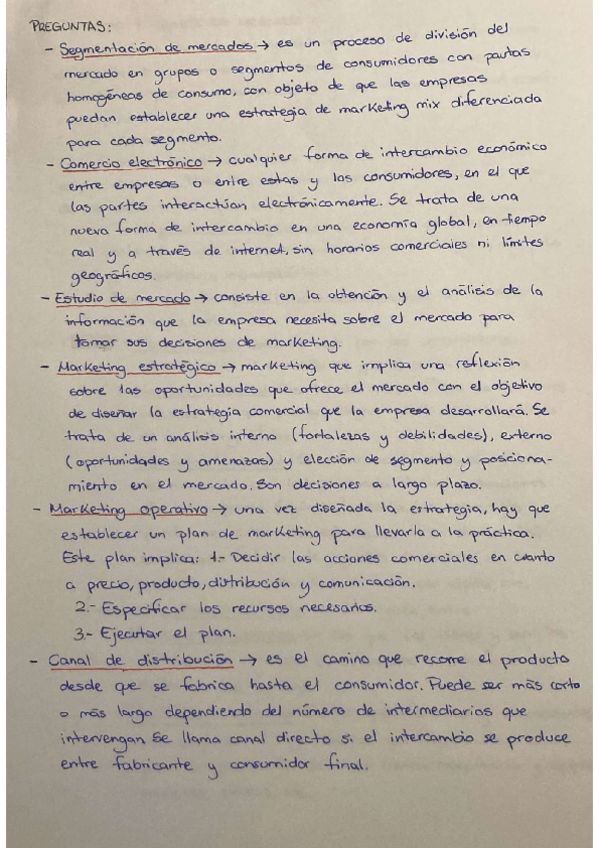 PREGUNTAS:
- Segmentación de mercados → es un proceso de división del
mercado en grupos o segmentos de consumidores con pautas
homogéneas de consumo, con objeto de que las empresas
puedan establecer una estrategia de marketing mix diferenciada
para cada segmento.
- Comercio electrónico → cualquier forma de intercambio económico
entre empresas o entre estas y los consumidores, en el que
las partes interactúan electrónicamente. Se trata de una
nueva forma de intercambio en una economía global, en tiempo
real y a través de internet, sin horarios comerciales ni límites
geográficos.
- Estudio de mercado → consiste en la obtención y el análisis de la
información que la empresa necesita sobre el mercado para
tomar sus decisiones de marketing.
- Marketing estratégico → marketing que implica una reflexión
sobre las oportunidades que ofrece el mercado con el objetivo
de diseñar la estrategia comercial que la empresa desarrollará. Se
trata de un análisis interno (fortalezas y debilidades), externo
(oportunidades y amenazas) y elección de segmento y posiciona-
miento en el mercado. Son decisiones a largo plazo.
- Marketing operativo → una vez diseñada la estrategia, hay que
establecer un plan de marketing para llevarla a la práctica.
Este plan implica: 1.- Decidir las acciones comerciales en cuanto
a precio, producto, distribución y comunicación.
2.- Especificar los recursos necesarios.
3.- Ejecutar el plan.
- Canal de distribución → es el camino que recorre el producto
desde que se fabrica hasta el consumidor. Puede ser más corto
o más largo dependiendo del número de intermediarios que
intervengan. Se llama canal directo si el intercambio se produce
entre fabricante y consumidor final.